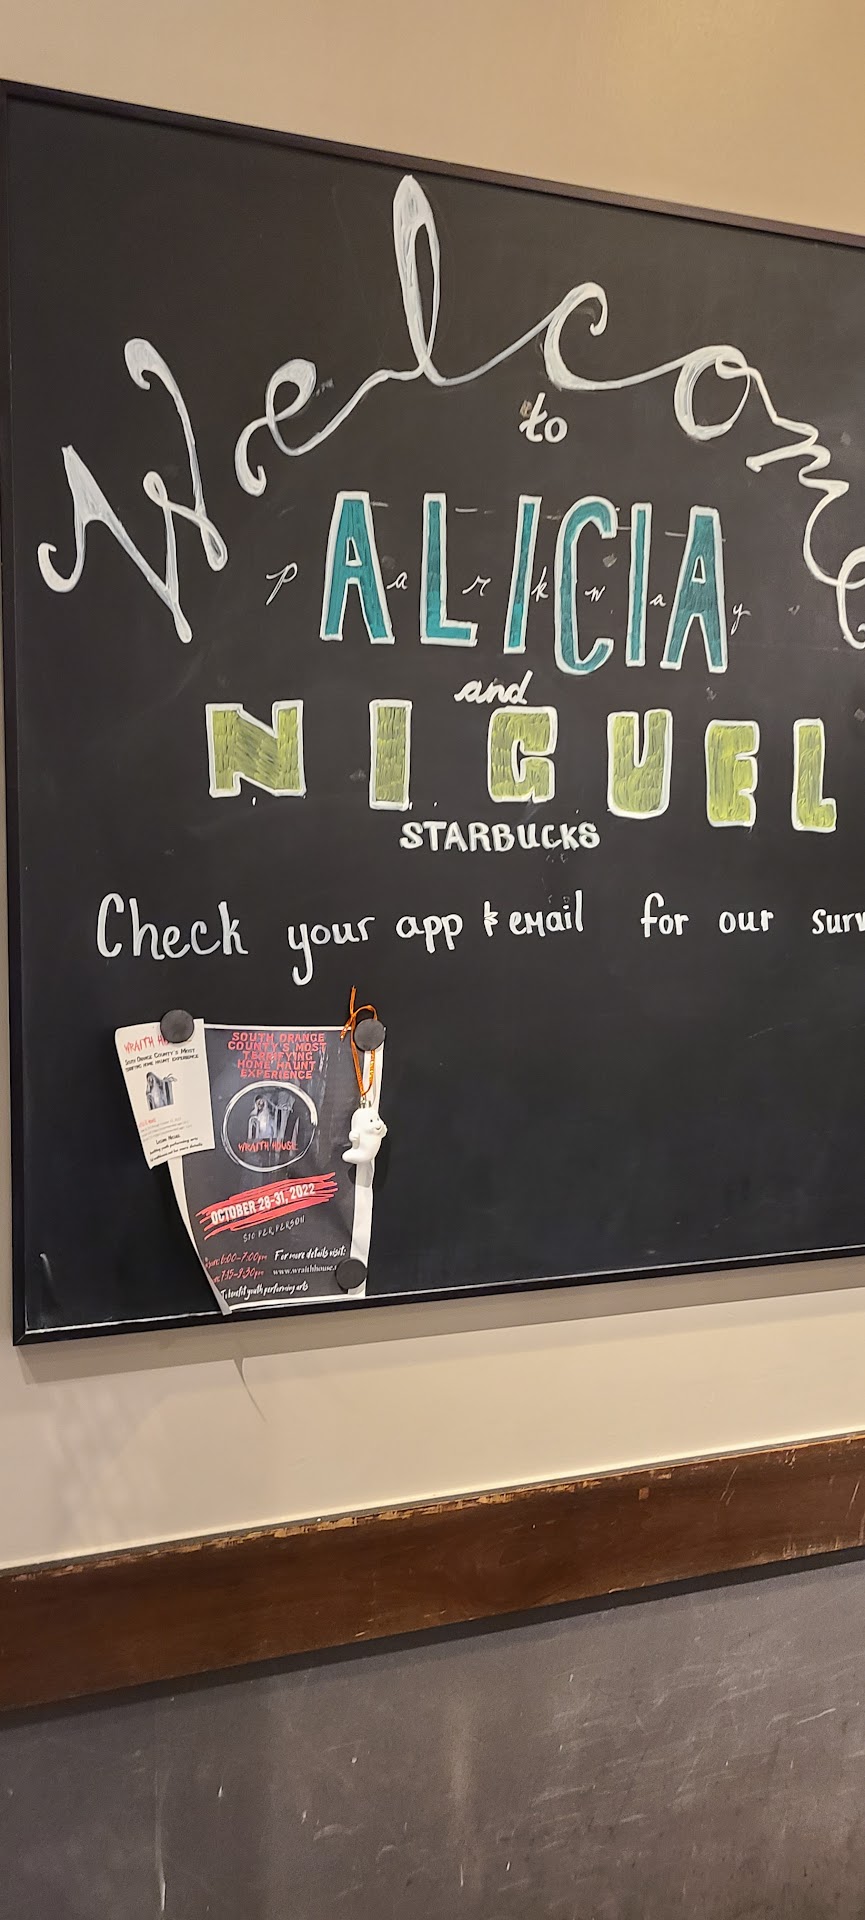 Welcome
to
ALICIA
Parkway
and
NIGUEL
STARBUCKS
Check your app & email for our surv
WRAITH
SOUTH ORANGE COUNTY'S MOST
TERRIFYING HOME HAUNT EXPERIENCE
SOUTH ORANGE
COUNTY'S MOST
TERRIFYING
HOME HAUNT
EXPERIENCE
WRAITH HOUSE
OCTOBER 28-31, 2022
$10 PER PERSON
6:00-7:00pm For more details visit:
7:15-9:30pm www.wraithhouse.
To benefit youth performing arts